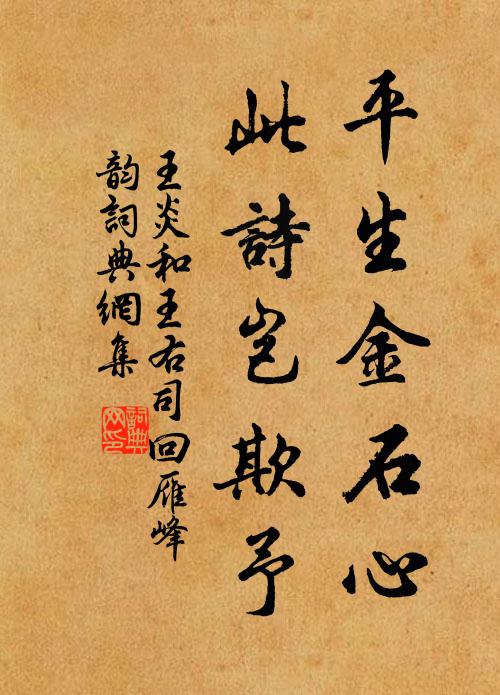 平生金石心
此詩豈欺予
王炎和王右司回雁峰
韵詞典網集
詞典网印